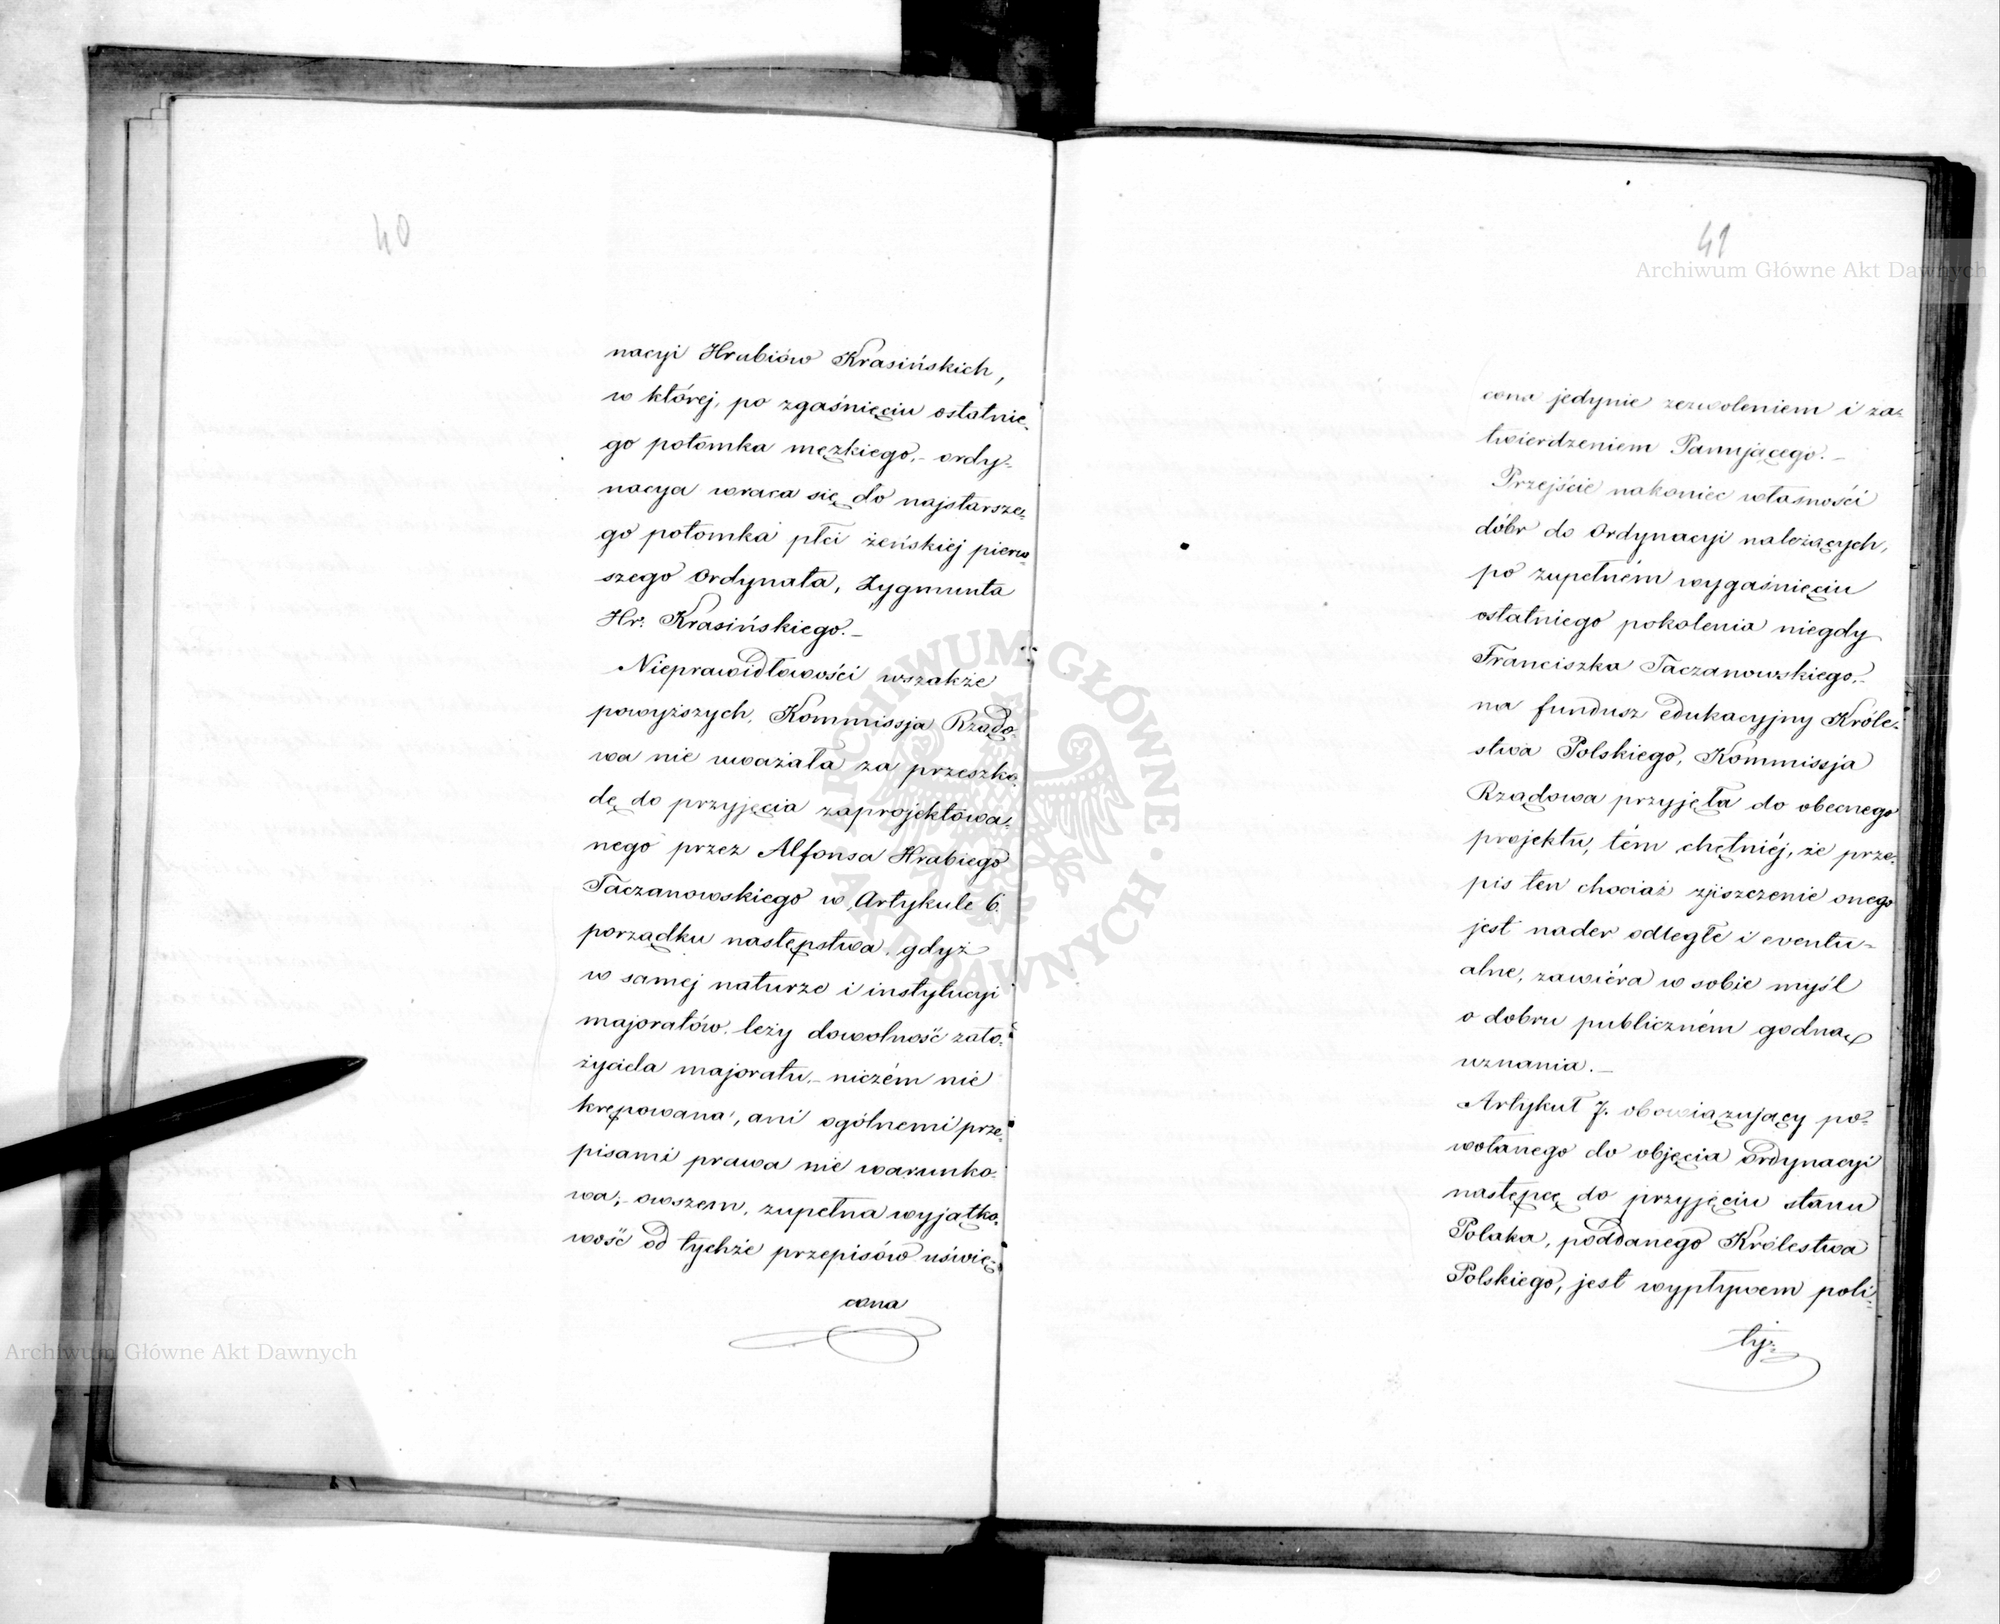 40
nacyi Hrabiów Krasińskich,
w której, po zgaśnięciu ostatnie-
go potomka męzkiego,- ordy-
nacya wraca się do najstarsze-
go potomka płci żeńskiej pierw-
szego Ordynata, Zygmunta
Hr: Krasińskiego.-
Nieprawidłowości wszakże
powyższych, Kommissja Rządo-
wa nie uważała za przeszko-
dę do przyjęcia zaprojektowa-
nego przez Alfonsa Hrabiego
Taczanowskiego w Artykule 6.
porządku następstwa, gdyż
w samej naturze i instytucyi
majoratów leży dowolność zało-
życiela majoratu,- niczém nie
krępowana, ani ogólnemi prze-
pisami prawa nie warunko-
wa,- owszem, zupełna wyjątko-
wość od tychże przepisów uświę-
cona
41
cona jedynie zezwoleniem i za-
twierdzeniem Panującego.-
Przejście nakoniec własności
dóbr do Ordynacyi należących,
po zupełném wygaśnięciu
ostatniego pokolenia niegdy
Franciszka Taczanowskiego,-
na fundusz edukacyjny Króle-
stwa Polskiego, Kommissja
Rządowa przyjęła do obecnego
projektu, tém chętniéj, że prze-
pis ten chociaż ziszczenie onego
jest nader odległe i eventu-
alne, zawiéra w sobie myśl
o dobru publiczném godną
uznania.-
Artykuł 7. obowiązujący po-
wołanego do objęcia Ordynacyi
następcę do przyjęciu stanu
Polaka, poddanego Królestwa
Polskiego, jest wypływem poli-
ty-
Archiwum Główne Akt Dawnych
ARCHIWUM GŁÓWNE AKT DAWNYCH
Archiwum Główne Akt Dawnych